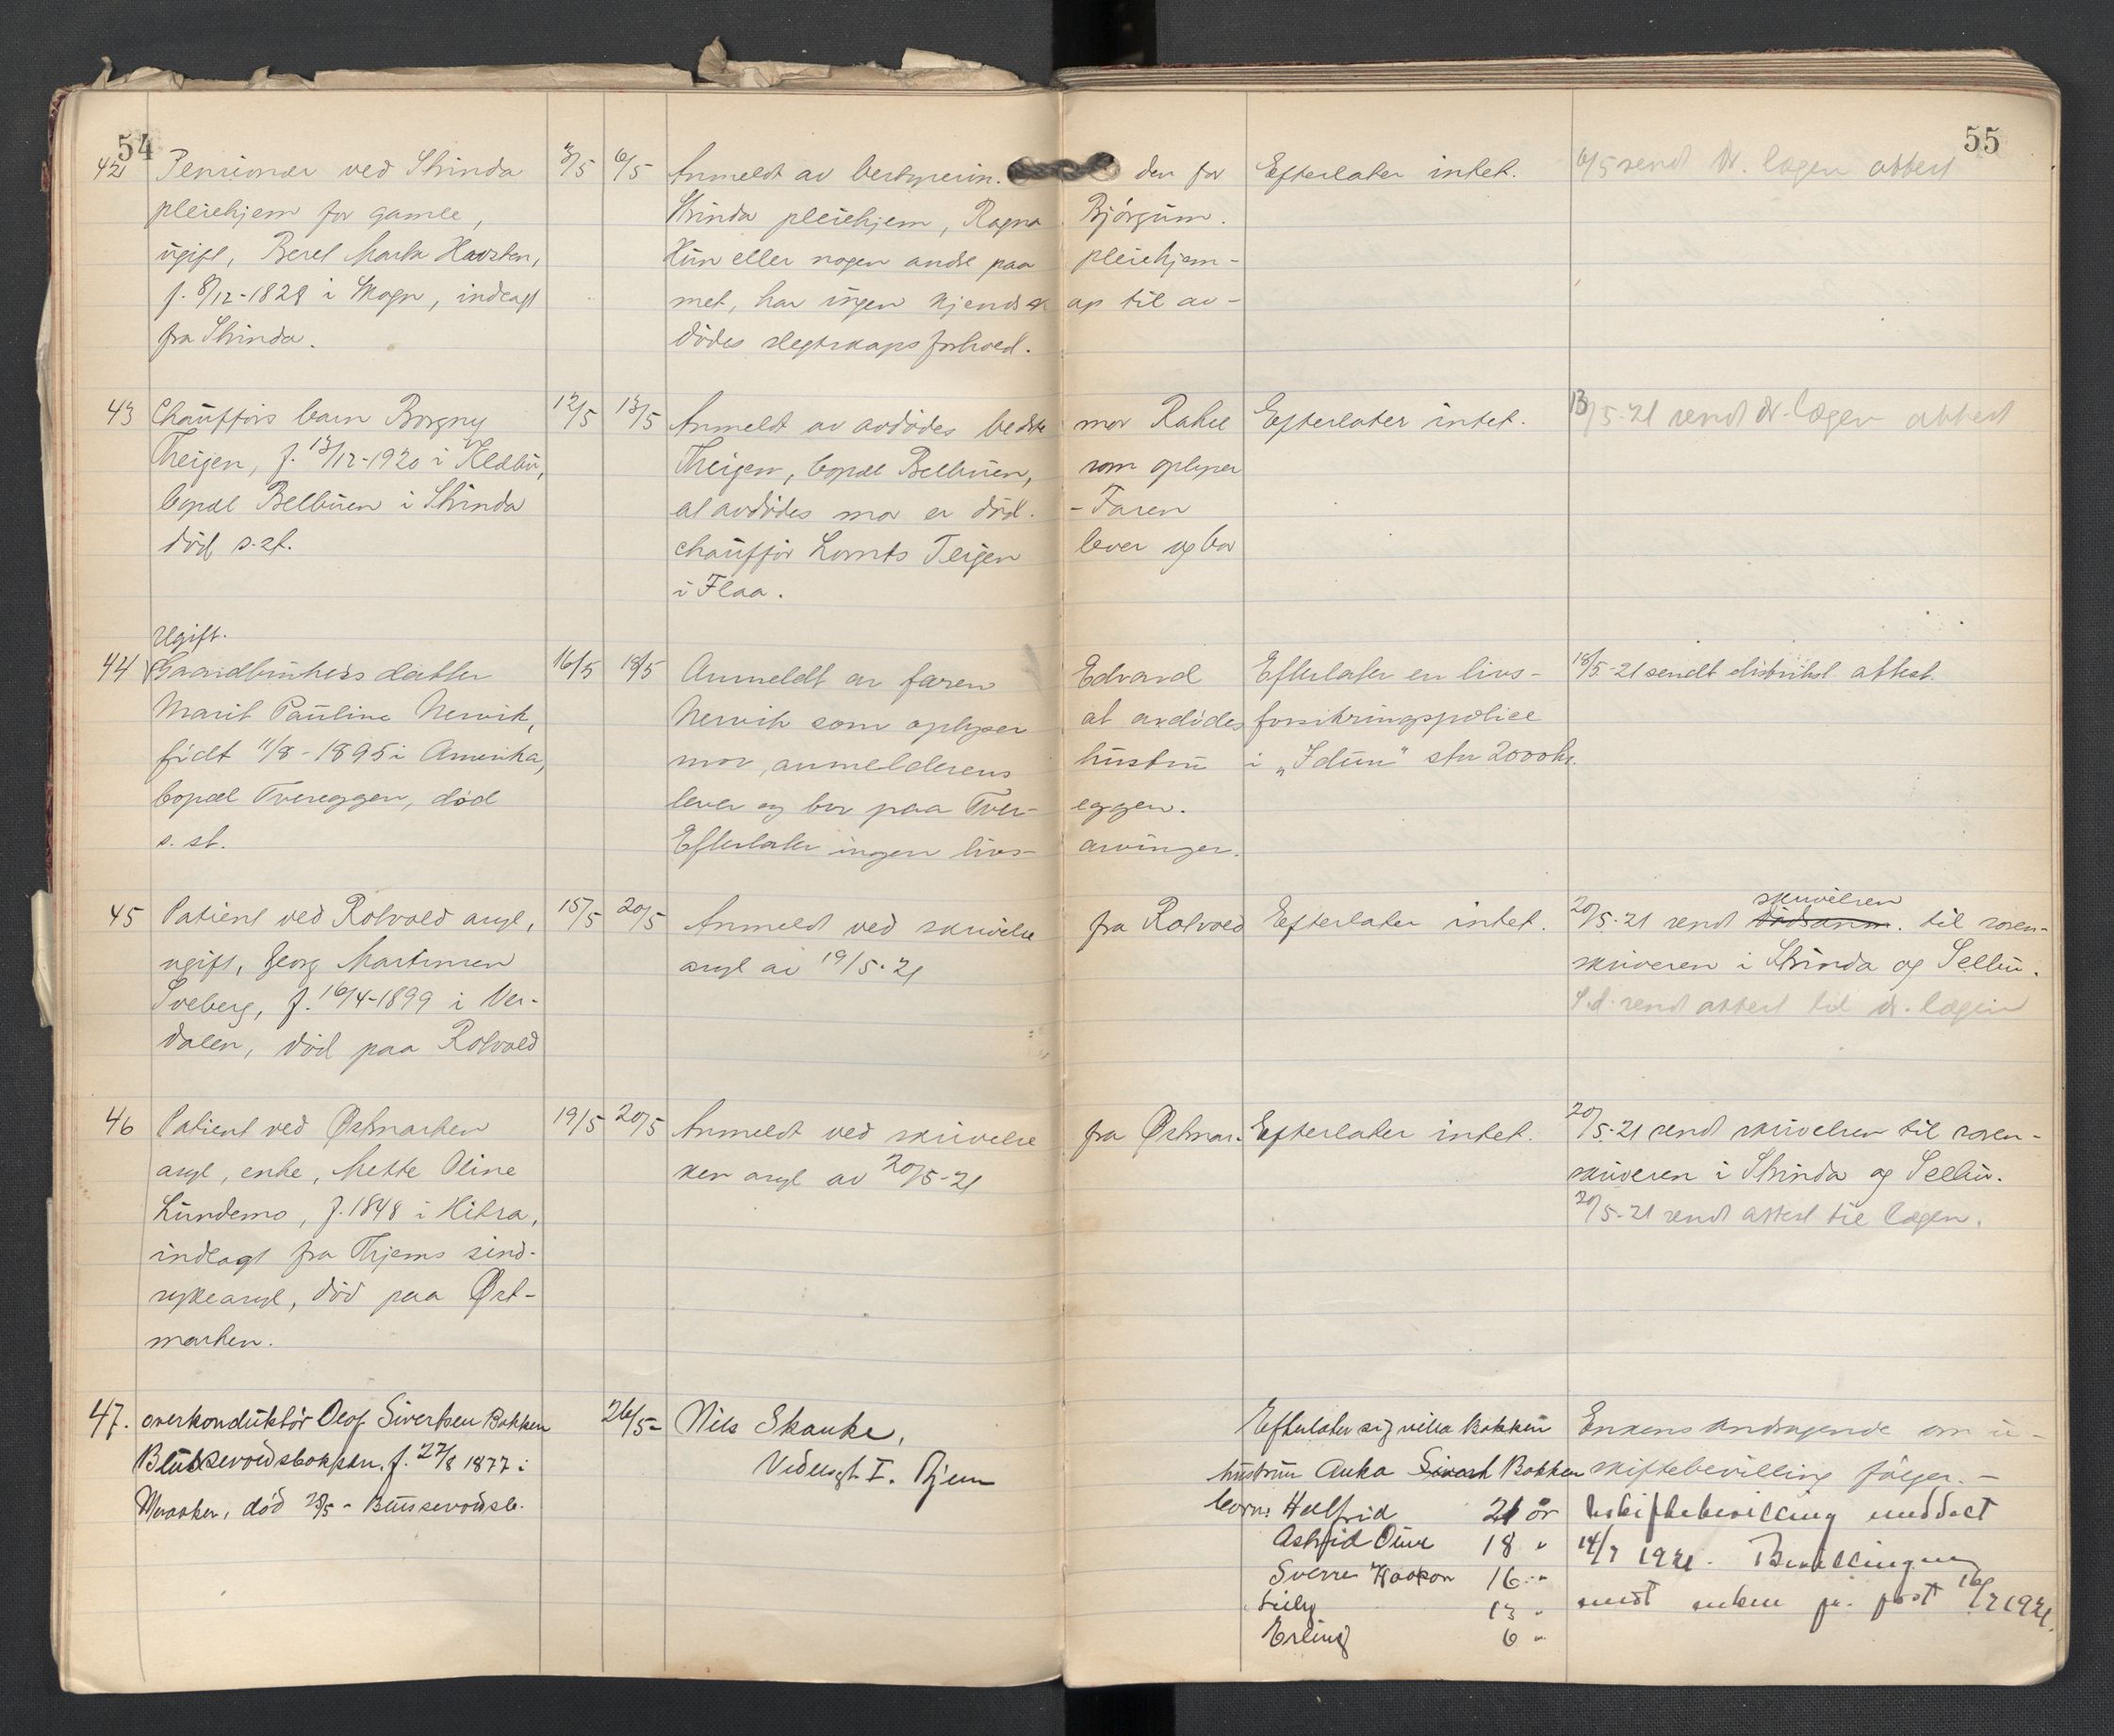 54
55
42 Pensionær ved Strinda 3/5 6/5 Anmeldt av bestyrerin. den for Efterlater intet. 6/5 sendt dr. lægen attest
pleiehjem for gamle, Strinda pleiehjem, Ragna Bjørgum.
ugift, Beret Marta Havsten, Hun eller nogen andre paa pleiehjem-
f. 8/12-1828 i Skogn, indlagt met, har ingen kjendsk ap til av-
fra Strinda. dødes slegtskapsforhold.
43 Chaufførs barn Borgny 12/5 13/5 Anmeldt av avdødes bedste mor Rakel Efterlater intet. 13/5-21 sendt dr. lægen attest
Theigen, f. 13/12-1920 i Klæbu, Theigen, bopæl Belbuen, som oplyser
bopæl Belbuen i Strinda at avdødes mor er død. - Faren
død s. st. chauffør Lornts Teigen lever og bor
i Flaa.
Ugift.
44 Gaardbrukers datter 16/5 18/5 Anmeldt av faren Edvard Efterlater en livs- 18/5-21 sendt distriktsl. attest.
Marit Pauline Nervik, Nervik som oplyser at avdødes forsikringspolice
født 11/8-1895 i Amerika, mor, anmelderens hustru i „Idun" stor 2000 kr.
bopæl Tvereggen, død lever og bor paa Tver- eggen.
s. st. Efterlater ingen livs- arvinger.
45 Patient ved Rotvold asyl, 15/5 20/5 Anmeldt ved skrivelse fra Rotvold Efterlater intet. 20/5-21 sendt dødsanm. skrivelsen til soren-
ugift, Georg Martinsen asyl av 19/5-21 skriveren i Strinda og Selbu.
Sveberg, f. 16/4-1899 i Ver- S.d. sendt attest til dr. lægen
dalen, død paa Rotvold
46 Patient ved Østmarken 19/5 20/5 Anmeldt ved skrivelse fra Østmar- Efterlater intet. 20/5-21 sendt skrivelsen til soren-
asyl, enke, Mette Oline ken asyl av 20/5-21 skriveren i Strinda og Selbu.
Lundemo, f. 1848 i Hitra, 20/5-21 sendt attest til lægen.
indlagt fra Thjems sind-
sykeasyl, død paa Øst-
marken.
47. overkonduktør Olof Sivertsen Bakken 26/5- Nils Skanke, Efterlater sig villa Bakken Enkens andragende om u-
Bussevoldsbakken, f. 27/8 1877 i Vidensgt. I. Thjem hustru Anka Sivert Bakken skiftebevilling følger. -
Meraker, død 25/5 - Bussevoldsb. barn: Halfrid 21 år Uskiftebevilling meddelt
Astrid Oline 18 " 14/7 1921. Bevillingen
Sverre Haakon 16 " sendt enken pr. post 16/7 1921.
Lilly 13 "
Erling 6 "